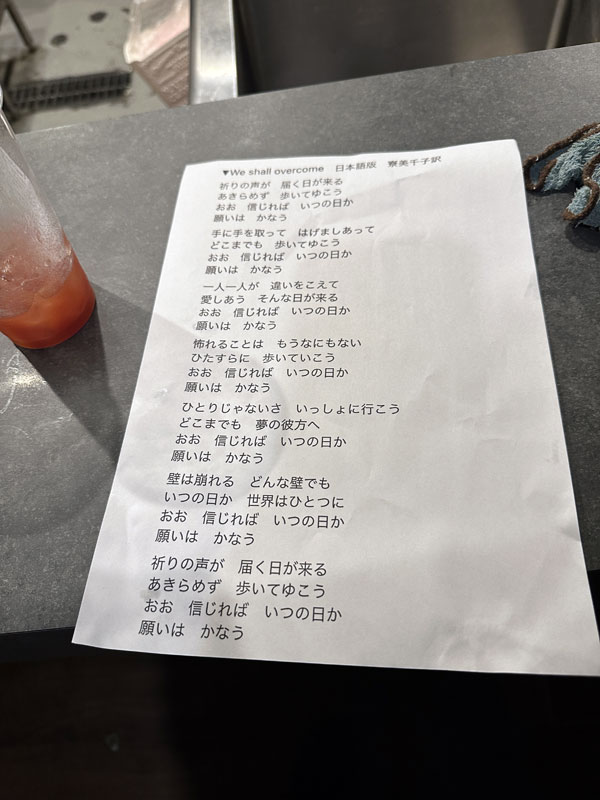 ▼We shall overcome　日本語版　寮美千子訳
祈りの声が　届く日が来る
あきらめず　歩いてゆこう
おお　信じれば　いつの日か
願いは　かなう
手に手を取って　はげましあって
どこまでも　歩いてゆこう
おお　信じれば　いつの日か
願いは　かなう
一人一人が　違いをこえて
愛しあう　そんな日が来る
おお　信じれば　いつの日か
願いは　かなう
怖れることは　もうなにもない
ひたすらに　歩いていこう
おお　信じれば　いつの日か
願いは　かなう
ひとりじゃないさ　いっしょに行こう
どこまでも　夢の彼方へ
おお　信じれば　いつの日か
願いは　かなう
壁は崩れる　どんな壁でも
いつの日か　世界はひとつに
おお　信じれば　いつの日か
願いは　かなう
祈りの声が　届く日が来る
あきらめず　歩いてゆこう
おお　信じれば　いつの日か
願いは　かなう